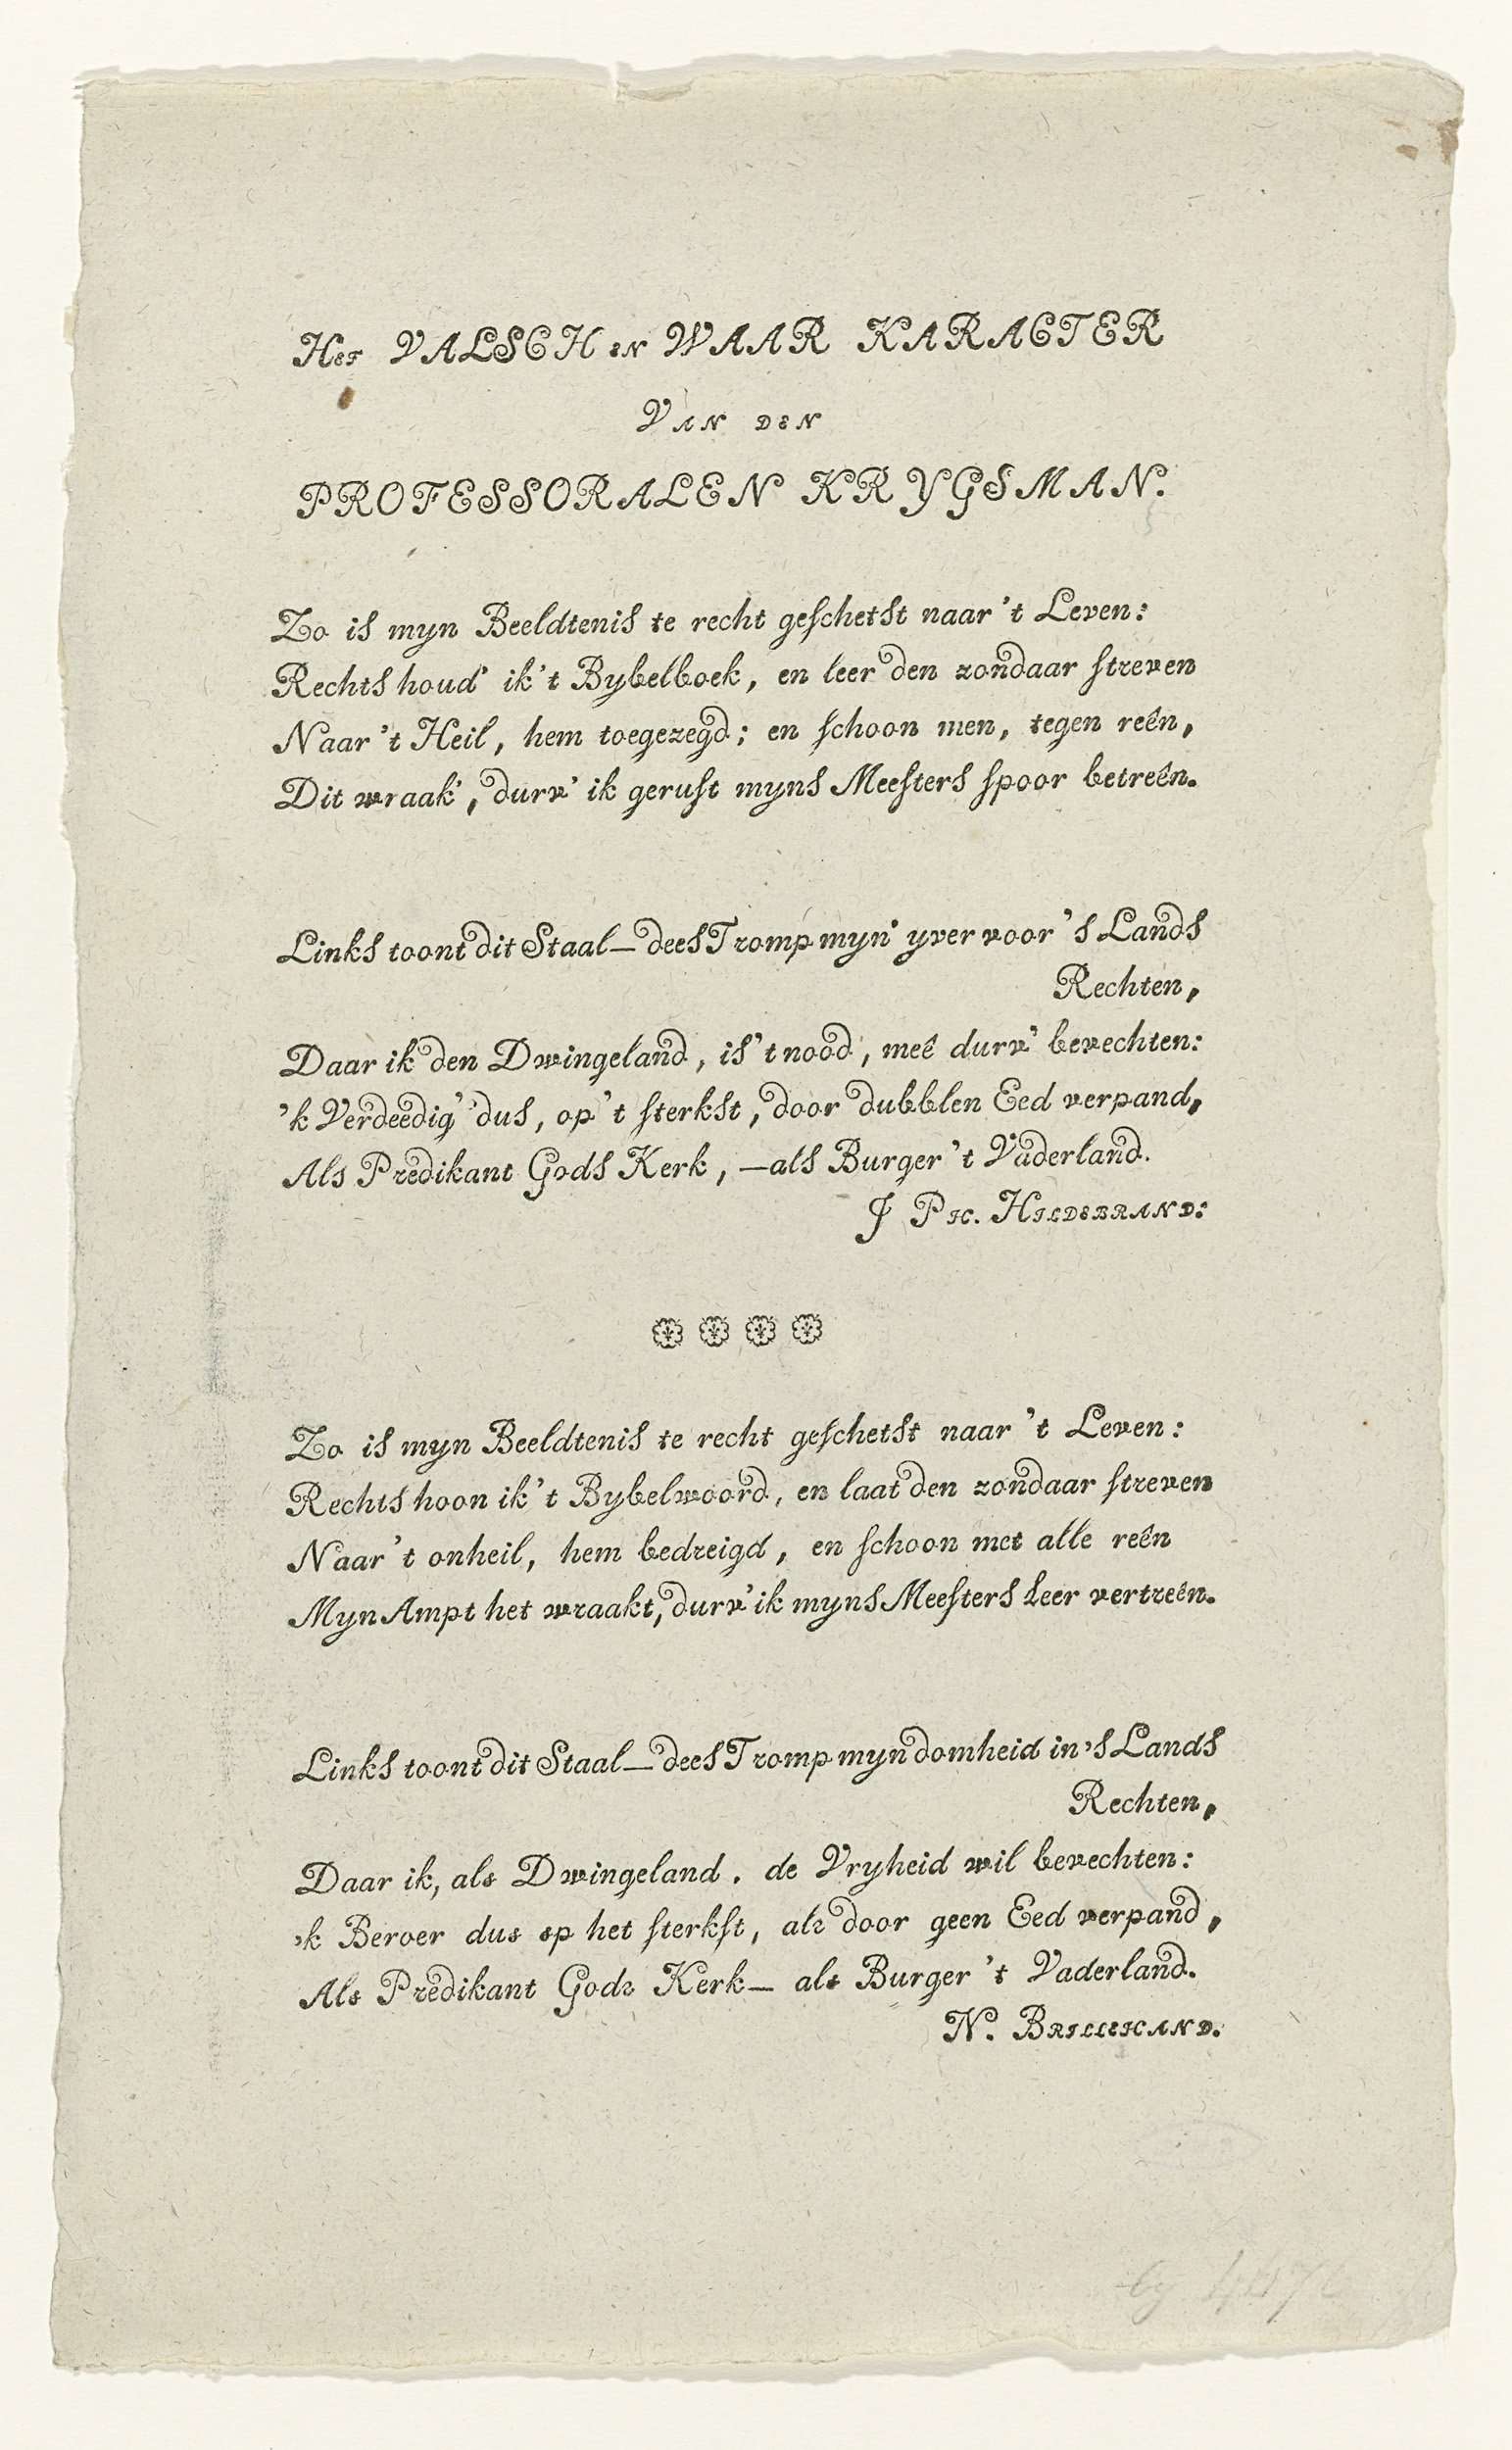 Het VALSCH en WAAR KARACTER
Van den
PROFESSORALEN KRYGSMAN.
Zo is myn Beeldtenis te recht geſchetst naar 't Leven:
Rechts houd' ik 't Bybelboek, en leer den zondaar ſtreven
Naar 't Heil, hem toegezegd; en ſchoon men, tegen reên,
Dit wraak', durv' ik geruſt myns Meeſters ſpoor betreên.
Links toont dit Staal—dees Tromp myn' yver voor 's Lands
Rechten,
Daar ik den Dwingeland, is 't nood, meê durv' bevechten:
'k Verdeedig' dus, op 't ſterkst, door dubblen Eed verpand,
Als Predikant Gods Kerk, —als Burger 't Vaderland.
J Ph. Hildebrand:
Zo is myn Beeldtenis te recht geſchetst naar 't Leven:
Rechts hoon ik 't Bybelwoord, en laat den zondaar ſtreven
Naar 't onheil, hem bedreigd, en ſchoon met alle reên
Myn Ampt het wraakt, durv' ik myns Meeſters Leer vertreên.
Links toont dit Staal—dees Tromp myn domheid in 's Lands
Rechten,
Daar ik, als Dwingeland. de Vryheid wil bevechten:
'k Beroer dus op het ſterkſt, als door geen Eed verpand,
Als Predikant Gods Kerk— als Burger 't Vaderland.
N. Brillehand.